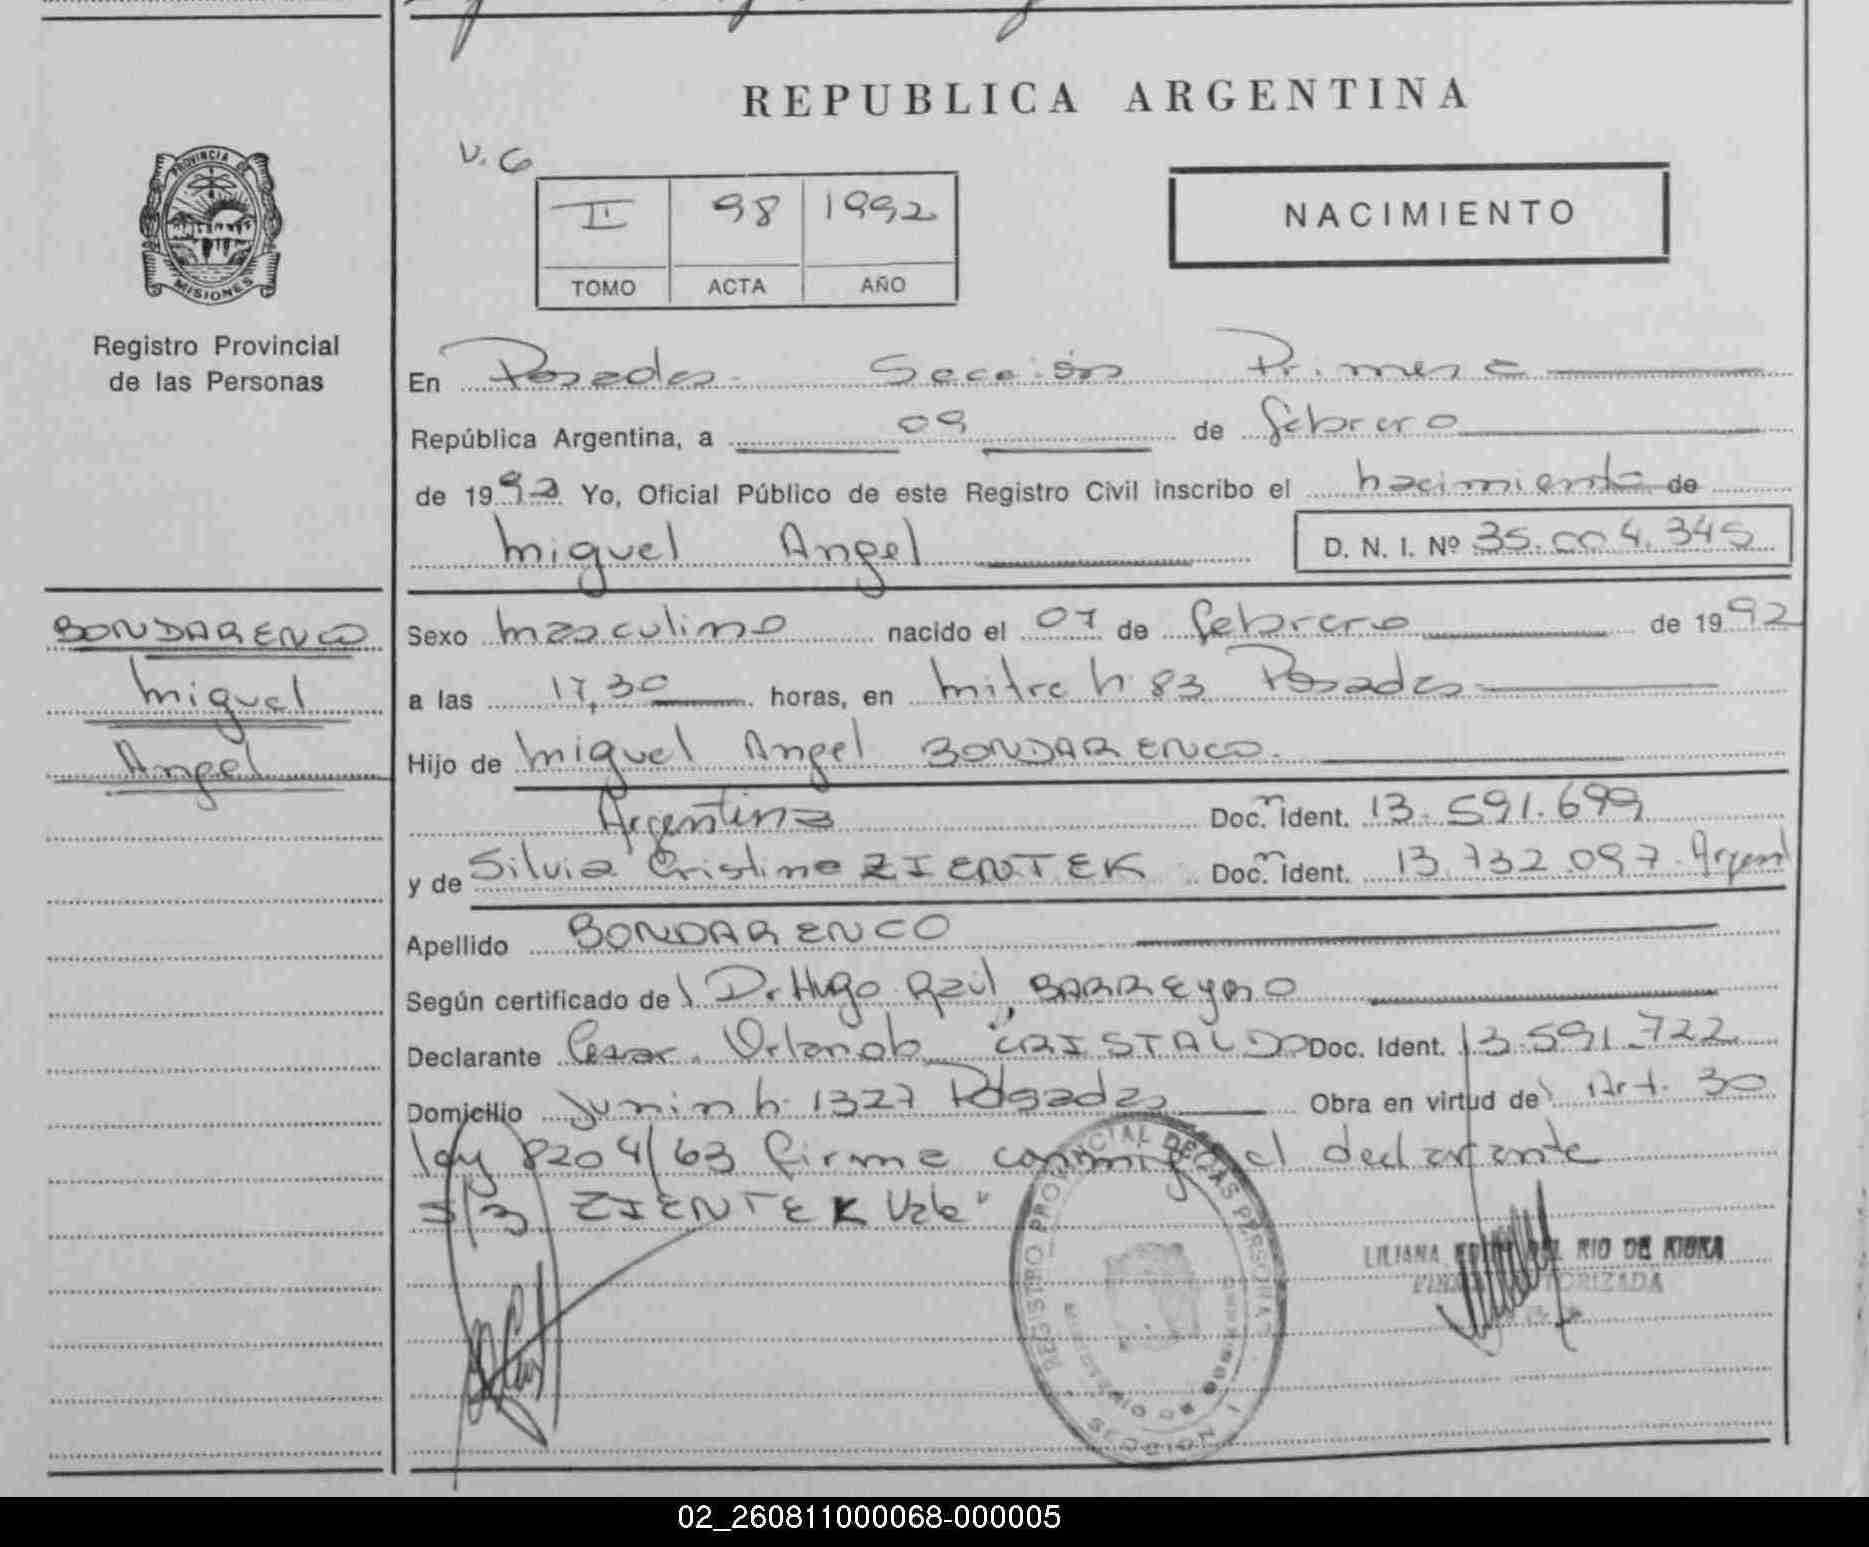 REPUBLICA ARGENTINA
V. G
II 98 1992
TOMO ACTA AÑO
NACIMIENTO
PROVINCIA DE
MISIONES
Registro Provincial
de las Personas
En Posadas Sección Primera
República Argentina, a 09 de febrero
de 1992 Yo, Oficial Público de este Registro Civil inscribo el nacimiento de
Miguel Angel D. N. I. Nº 35.004.345
BONDARENCO
Miguel
Angel
Sexo masculino nacido el 07 de febrero de 1992
a las 17,30 horas, en Mitre n 83 Posadas
Hijo de Miguel Angel BONDARENCO.
Argentina Doc. Ident. 13.591.699
y de Silvia Cristina ZIENTEK Doc. Ident. 13.732.097 Argent
Apellido BONDARENCO
Según certificado del Dr Hugo Raúl BARREYRO
Declarante Cesar Orlando CRISTALDO Doc. Ident. 13.591.722
Domicilio Junin n 1327 Posadas Obra en virtud del Art. 30
ley 8204/63 firma conmigo el declarante
S/R ZIENTEK Vale
REGISTRO PROVINCIAL DE LAS PERSONAS
MINISTERIO DE
SECCION I
LILIANA DEL RIO DE
AUTORIZADA
02_260811000068-000005